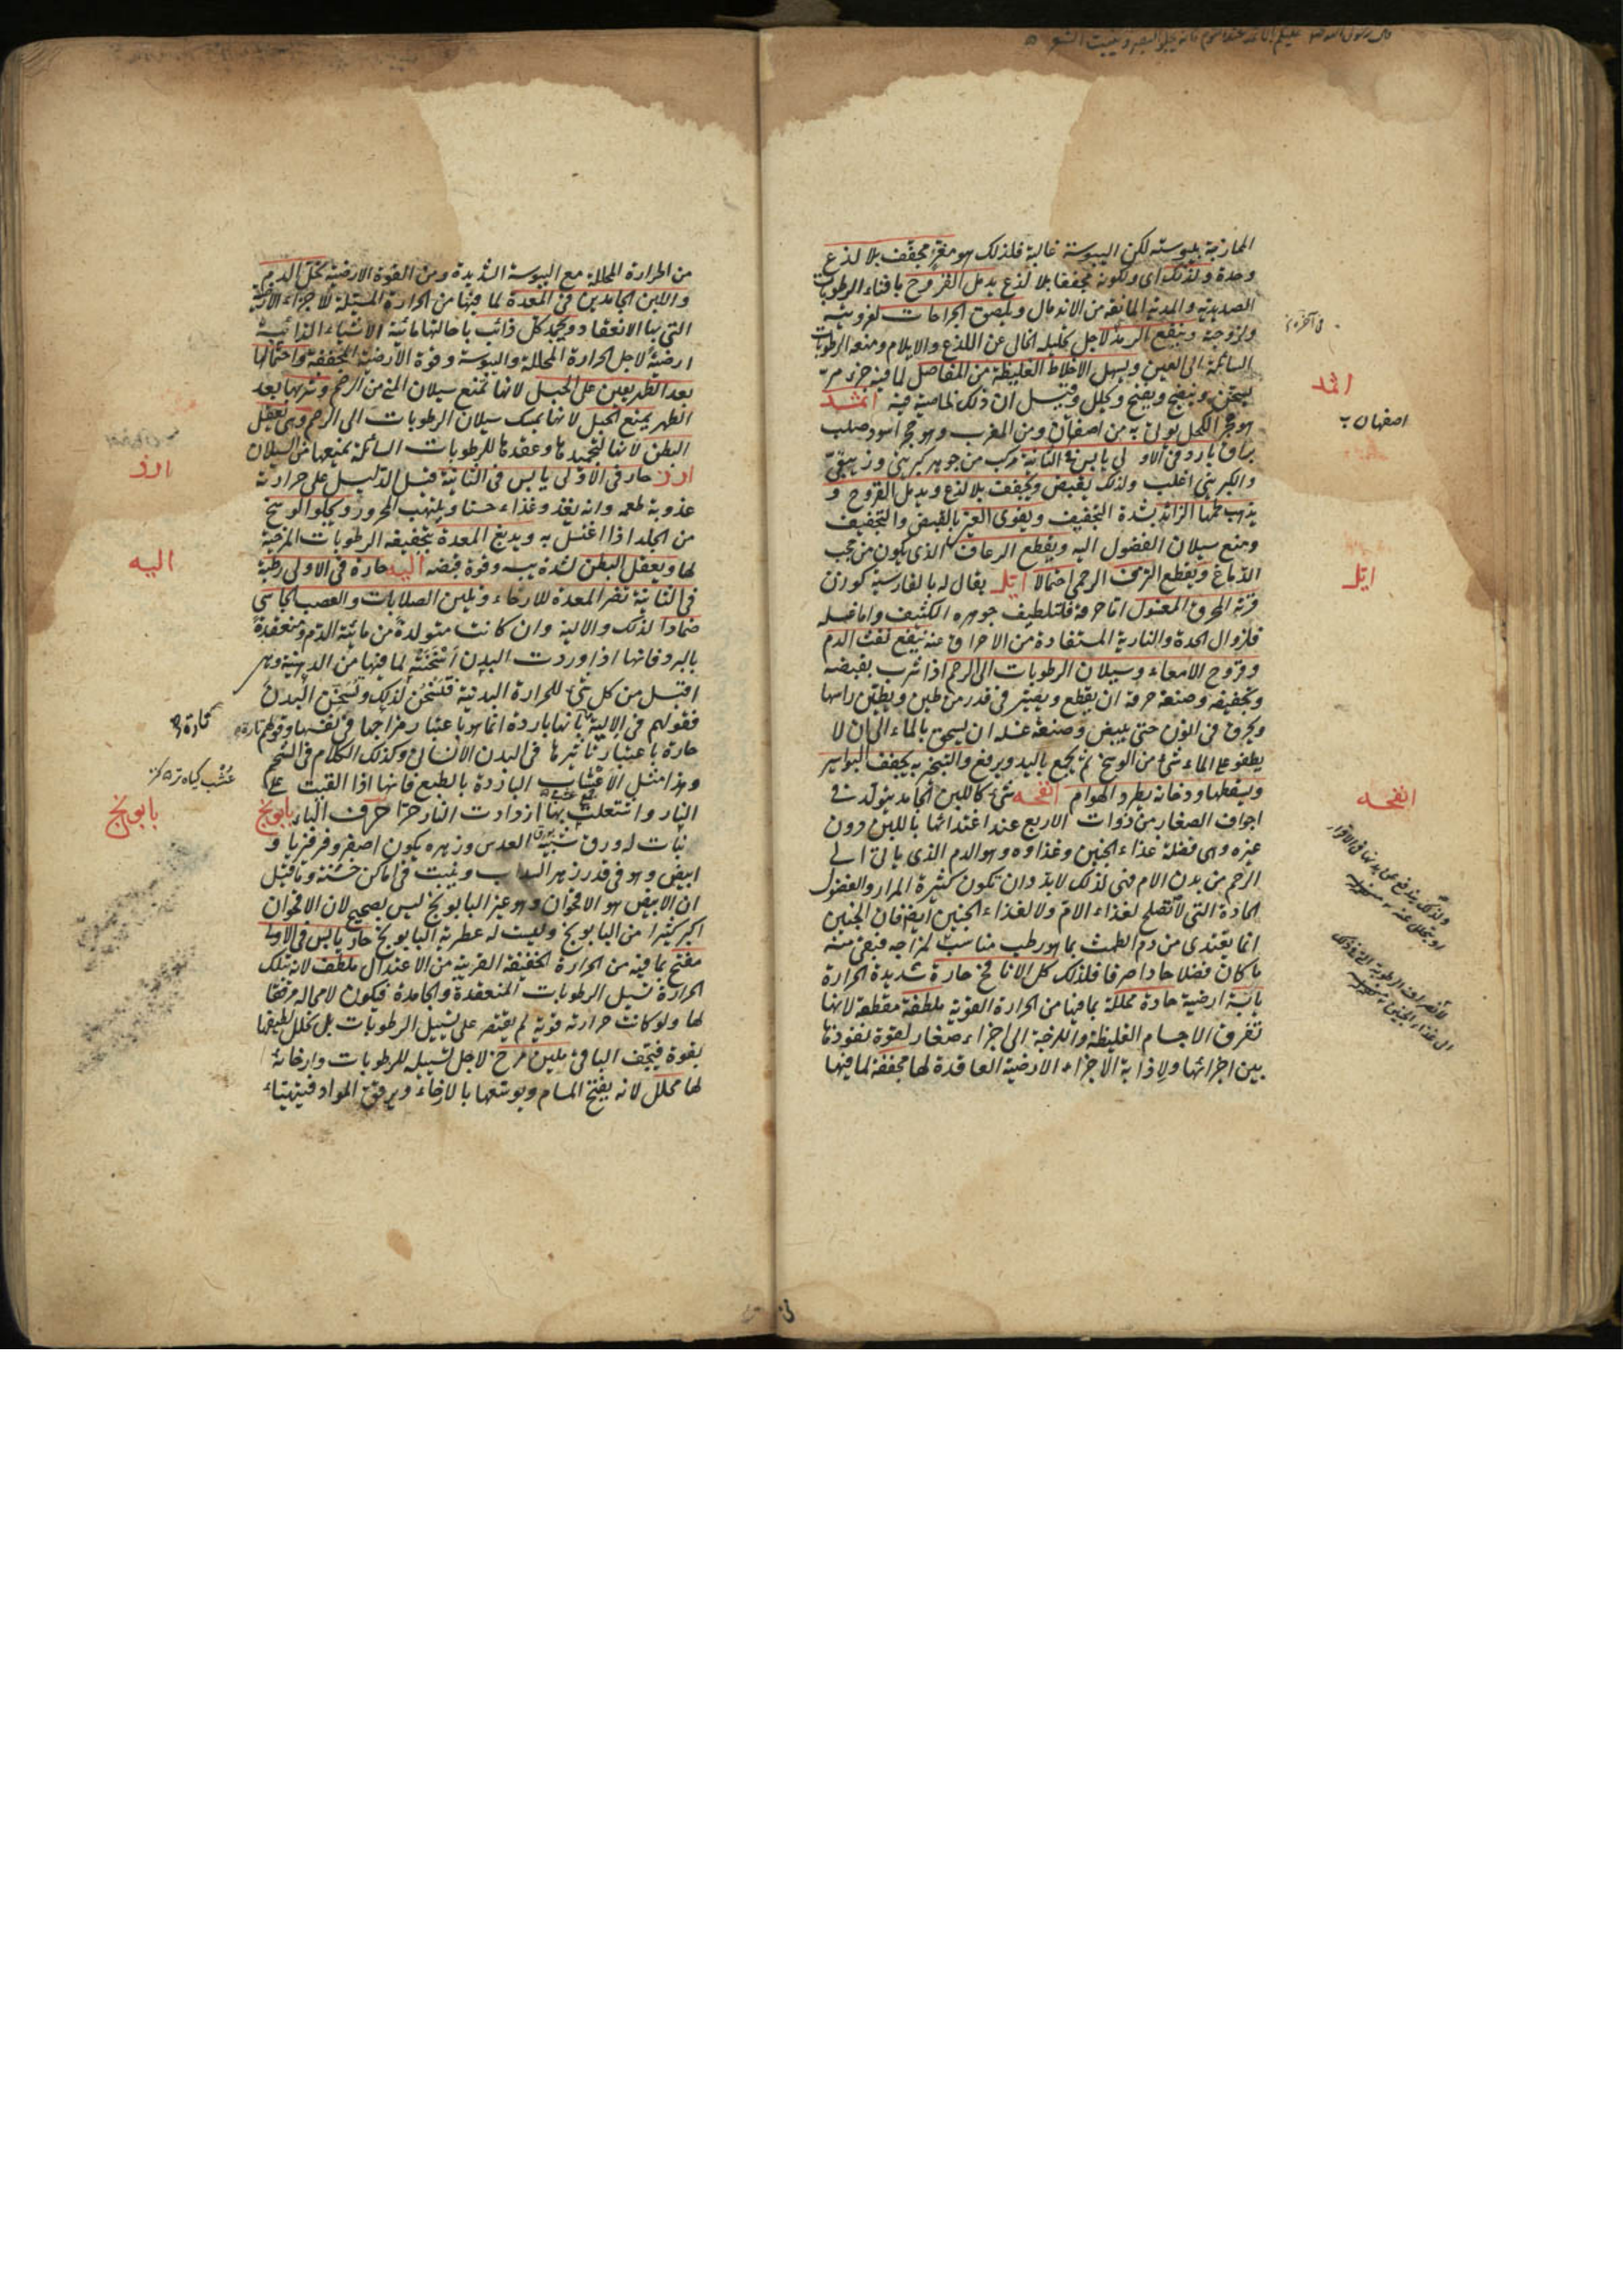 الممازجة بيبوسته لكن اليبوسة غالبة فلذلك هو مغرّ مجفف بلا لذع
وحدة ولذلك اى ولكونه مجففا بلا لذع يدمل القروح بافناء الرطوبات
الصديدية والمدية المانعة من الاندمال ويلصق الجراحات لغرويته
ولزوجته وينفع الرمد لاجل تحليله الخالى عن اللذع والايلام ومنعه الرطوبات
السائلة الى العين ويسهل الاخلاط الغليظة من المفاصل لما فيه جزء مرّ
يسخن وينضج ويفتح ويحلل وقيل ان ذلك لخاصية فيه اثمد
هو حجر الكحل يؤتى به من اصفهان ومن المغرب وهو حجر اسود صلب
براق بارد فى الاولى يابس فى الثانية مركب من جوهر كبريتى وزيبقىّ
والكبريتى اغلب ولذلك يقبض ويجفف بلا لذع ويدمل القروح و
يذهب لحمها الزائد بشدة التجفيف ويقوى العين بالقبض والتجفيف
ومنع سيلان الفضول اليه ويقطع الرعاف الذى يكون من حجب
الدماغ ويقطع النزف الرحمى احتمالا ايّل يقال له بالفارسية كوزن
قرنه المحرق المغسول اما حرقه فلتلطيف جوهره الكثيف واما غسله
فلزوال الحدة والنارية المستفادة من الاحراق عنه ينفع نفث الدم
وقروح الامعاء وسيلان الرطوبات الى الرحم اذا شرب بقبضه
وتجفيفه وصنعة حرقه ان يقطع ويصير فى قدر من طين ويطين راسها
ويحرق فى اتون حتى يبيض وصنعة غسله ان يسحق بالماء الى ان لا
يطفو على الماء شئ من الوسخ ثم يجمع باليد ويرفع والتبخر به يجفف البواسير
ويسقطها ودخانه يطرد الهوام انفحه شئ كاللبن الجامد يتولد فى
اجواف الصغار من ذوات الاربع عند اغتذائها باللبن دون
غيره وهى فضلة غذاء الجنين وغذاوه هو الدم الذى ياتى الى
الرحم من بدن الام فهى لذلك لابد وان تكون كثيرة المرار والفضول
الحادة التى لا تصلح لغذاء الام ولا لغذاء الجنين ايضا فان الجنين
انما يغتذى من دم الطمث بما هو رطب مناسب لمزاجه فيبقى منه
ما كان فضلا حادا صرفا فلذلك كل الانافح حارة شديدة الحرارة
يابسة ارضية حادة محللة بما فيها من الحرارة القوية ملطفة مقطعة لانها
تفرق الاجسام الغليظة واللزجة الى اجزاء صغار لقوة نفوذها
بين اجزائها ولاذابة الاجزاء الارضية العاقدة لها مجففة لما فيها
اثمد
اصفهان
ايل
انفحه
من الحرارة المحللة مع اليبوسة الشديدة ومن القوة الارضية تحلل الدم
واللبن الجامدين فى المعدة لما فيها من الحرارة المسيلة للاجزاء الارضية
التى بها الانعقاد ويجمد كل ذائب باحالتها مائية الاشياء الذائبة
ارضية لاجل الحرارة المحللة واليبوسة وقوة الارضية المجففة واحتمالها
بعد الطهر يعين على الحبل لانها تمنع سيلان المنى من الرحم وشربها بعد
الطهر يمنع الحبل لانها يمسك سيلان الرطوبات الى الرحم وهى تعقل
البطن لانها لتجميدها وعقدها للرطوبات السائلة تمنعها من السيلان
ارز حار فى الاولى يابس فى الثانية قيل الدليل على حرارته
عذوبة طعمه وانه يغذو غذاء حسنا ويلهب المحرور ويجلو الوسخ
من الجلد اذا اغتسل به ويدبغ المعدة بتجفيفه الرطوبات المرخية
لها ويعقل البطن لشدة يبسه وقوة قبضه اليه حارة فى الاولى رطبة
فى الثانية تضر المعدة للارخاء وتلين الصلابات والعصب الجاسى
ضمادا لذلك والالية وان كانت متولدة من مائية الدم ومنعقدة
بالبرد فانها اذا وردت البدن اسخنته لما فيها من الدهنية وهى
اقبل من كل شئ للحرارة البدنية فتسخن لذلك وتسخن البدن
فقولهم فى الالية بانها باردة انما هو باعتبار مزاجها فى نفسها وقولهم تارة
حارة باعتبار تاثيرها فى البدن الانسانى وكذلك الكلام فى الشحم
وهذا مثل الاعشاب الباردة بالطبع فانها اذا القيت على
النار واشتعلت بها ازدادت النار حرا حرف الباء بابونج
نبات له ورق شبيه بورق العدس وزهره يكون اصفر وفرفيريا و
ابيض وهو فى قدر زهر السداب وينبت فى اماكن خشنة وما قيل
ان الابيض هو الاقحوان وهو غير البابونج ليس بصحيح لان الاقحوان
اكبر كثيرا من البابونج وليست له عطرية البابونج حار يابس فى الاولى
مفتح بما فيه من الحرارة الخفيفة القريبة من الاعتدال ملطف لانه بتلك
الحرارة تسيل الرطوبات المنعقدة والجامدة فيكون لامحاله مرققا
لها ولو كانت حرارته قوية لم يقتصر على تسييل الرطوبات بل تحلل لطيفها
بقوة فيجف الباقى ملين مرخ لاجل تسييله للرطوبات وارخائه
لها محلل لانه يفتح المسام ويوسعها بالارخاء ويرقق المواد فيتهياء
ارز
اليه
بابونج